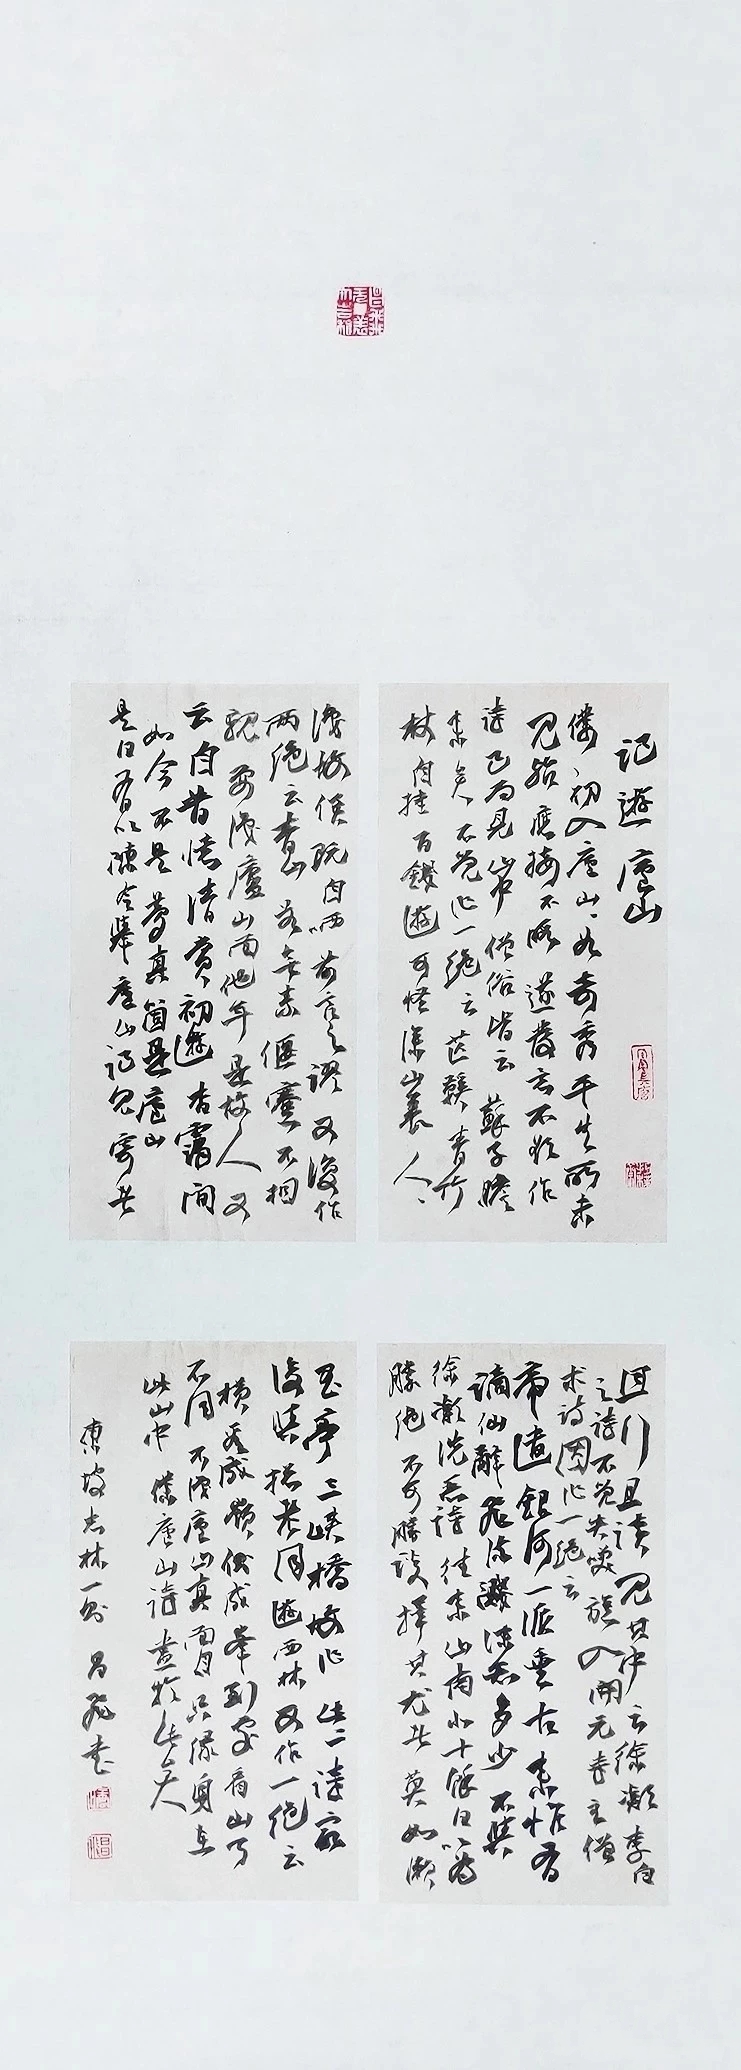 記遊廬山
僕初入廬山〻谷奇秀平生所未
見殆應接不暇遂發意不欲作
詩已而見山中僧俗皆云蘇子瞻
來矣不覺作一絕云芒鞵青竹
杖自挂百錢遊可怪深山裏人〻
識故侯既自哂前言之謬又復作
兩絕云青山若無素偃蹇不相
親要識廬山面他年是故人又
云自昔憶清賞初遊杳靄間
如今不是夢真箇是廬山
是日有以陳令舉廬山記見寄者
且行且讀見其中云徐凝李白
之詩不覺失笑旋入開元寺主僧
求詩因作一絕云
帝遣銀河一派垂古來惟有
謫仙辭飛流濺沫知多少不與
徐凝洗惡詩往來山南北十餘日以為
勝絕不可勝談擇其尤者莫如漱
玉亭三峽橋故作此二詩最
後與摠老同遊西林又作一絕云
橫看成嶺側成峯到處看山了
不同不識廬山真面目只緣身在
此山中僕廬山詩盡於此矣
東坡志林一則 呂飛書